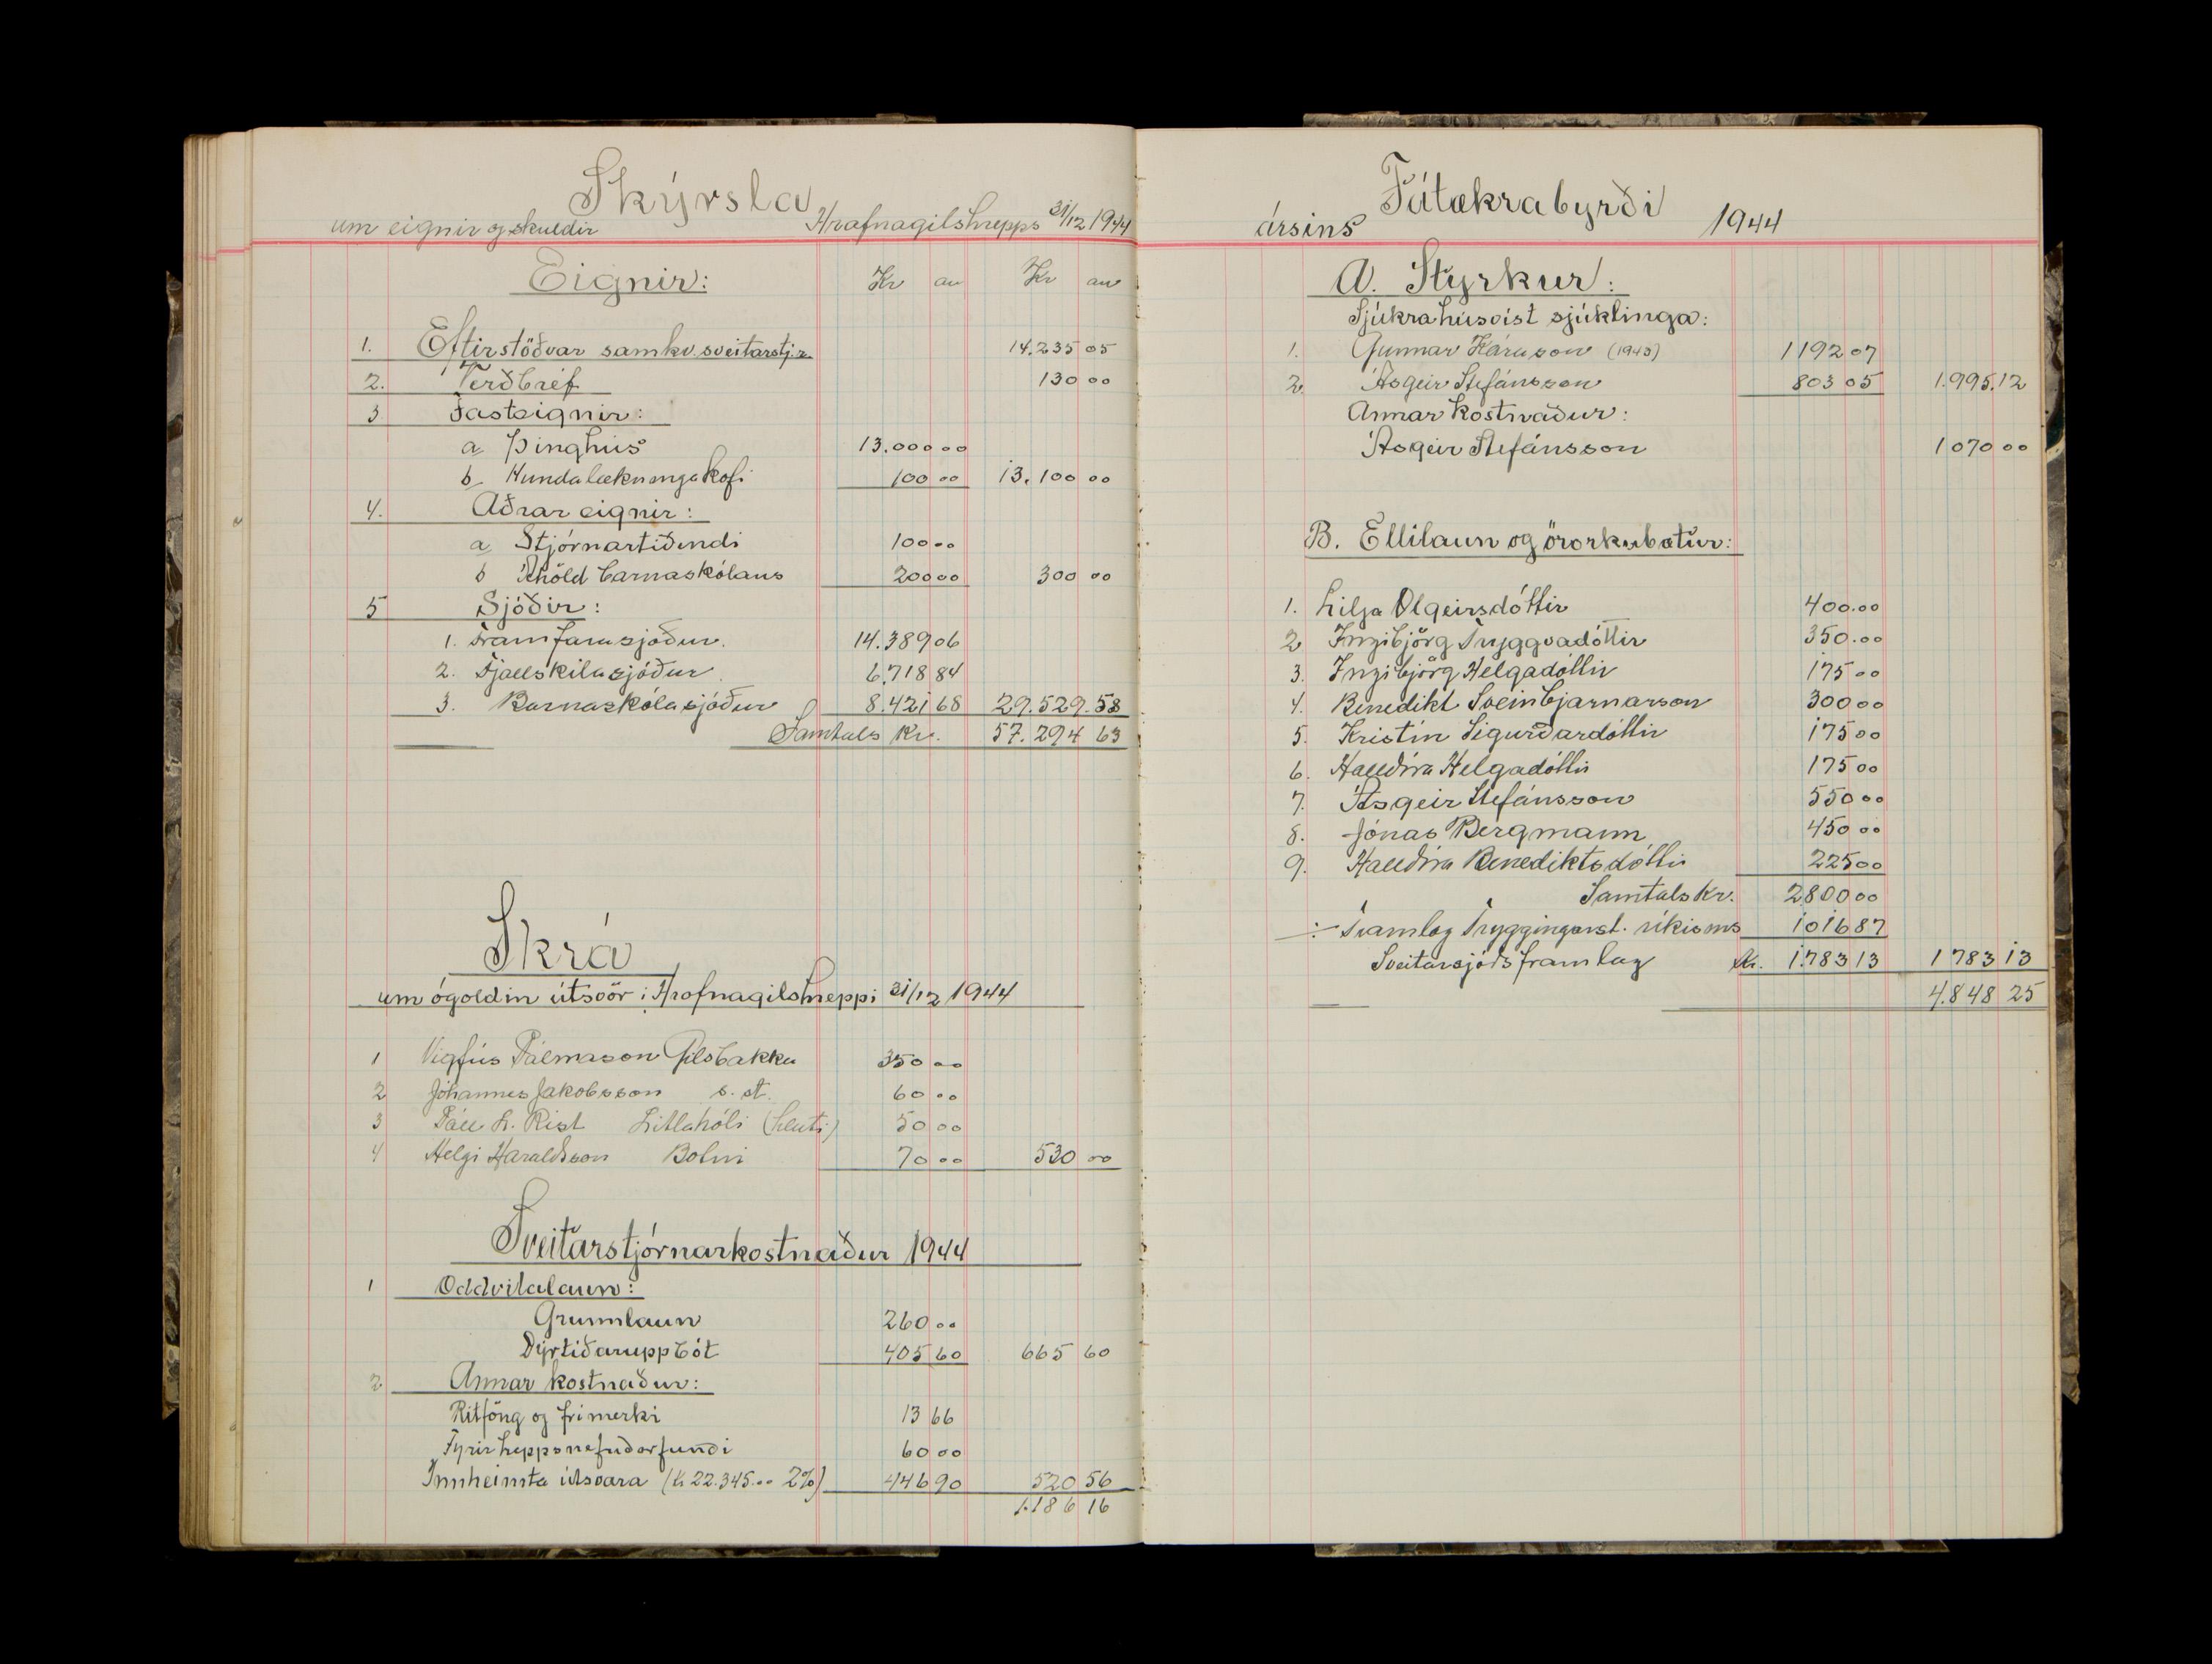 Skýrsla
um eignir og skuldir Hrafnagilshrepps 31/12 1944
Eignir: Kr au Kr au
1. Eftirstöðvar samkv. sveitarstj.r. 14.235 05
2. Verðbréf 130 00
3 Fasteignir:
a Þinghús 13.000 00
b Hundalækningakofi 100 00 13.100 00
4. Aðrar eignir:
a Stjórnartíðindi 100 00
b Áhöld barnaskólans 200 00 300 00
5 Sjóðir:
1. Framfarasjóður. 14.389 06
2. Fjallskilasjóður 6.718 84
3. Barnaskólasjóður 8.421 68 29.529.58
Samtals Kr. 57.294 63
Skrá
um ógoldin útsvör í Hrafnagilshreppi 31/12 1944
1 Vigfús Pálmason Gilsbakka 350 00
2 Jóhannes Jakobsson s. st. 60 00
3 Páll L. Rist Litlahóli (hluti) 50 00
4 Helgi Haraldsson Botni 70 00 530 00
Sveitarstjórnarkostnaður 1944
1 Oddvitalaun:
Grunnlaun 260 00
Dýrtíðaruppbót 405 60 665 60
2 Annar kostnaður:
Ritföng og frímerki 13 66
Fyrir heppsnefndarfundi 60 00
Innheimta útsvara (Kr 22.345.00 2%) 446 90 520 56
1.186 16
Fátækrabyrði
ársins 1944
A. Styrkur:
Sjúkrahúsvist sjúklinga:
1. Gunnar Kárason (1943) 1192 07
2. Ásgeir Stefánsson 803 05 1.995.12
Annar kostnaður:
Ásgeir Stefánsson 1070 00
B. Ellilaun og örorkubætur:
1. Lilja Olgeirsdóttir 400.00
2 Ingibjörg Tryggvadóttir 350.00
3. Ingibjörg Helgadóttir 175 00
4. Benedikt Sveinbjarnarson 300 00
5. Kristín Sigurðardóttir 175 00
6. Halldóra Helgadóttir 175 00
7. Ásgeir Stefánsson 550 00
8. Jónas Bergmann 450 00
9. Halldóra Benediktsdóttir 225 00
Samtals Kr. 2800 00
÷ Framlag Tryggingarst. ríkisins 1016 87
Sveitarsjóðs framlag Kr. 1.783 13 1783 13
4.848 25